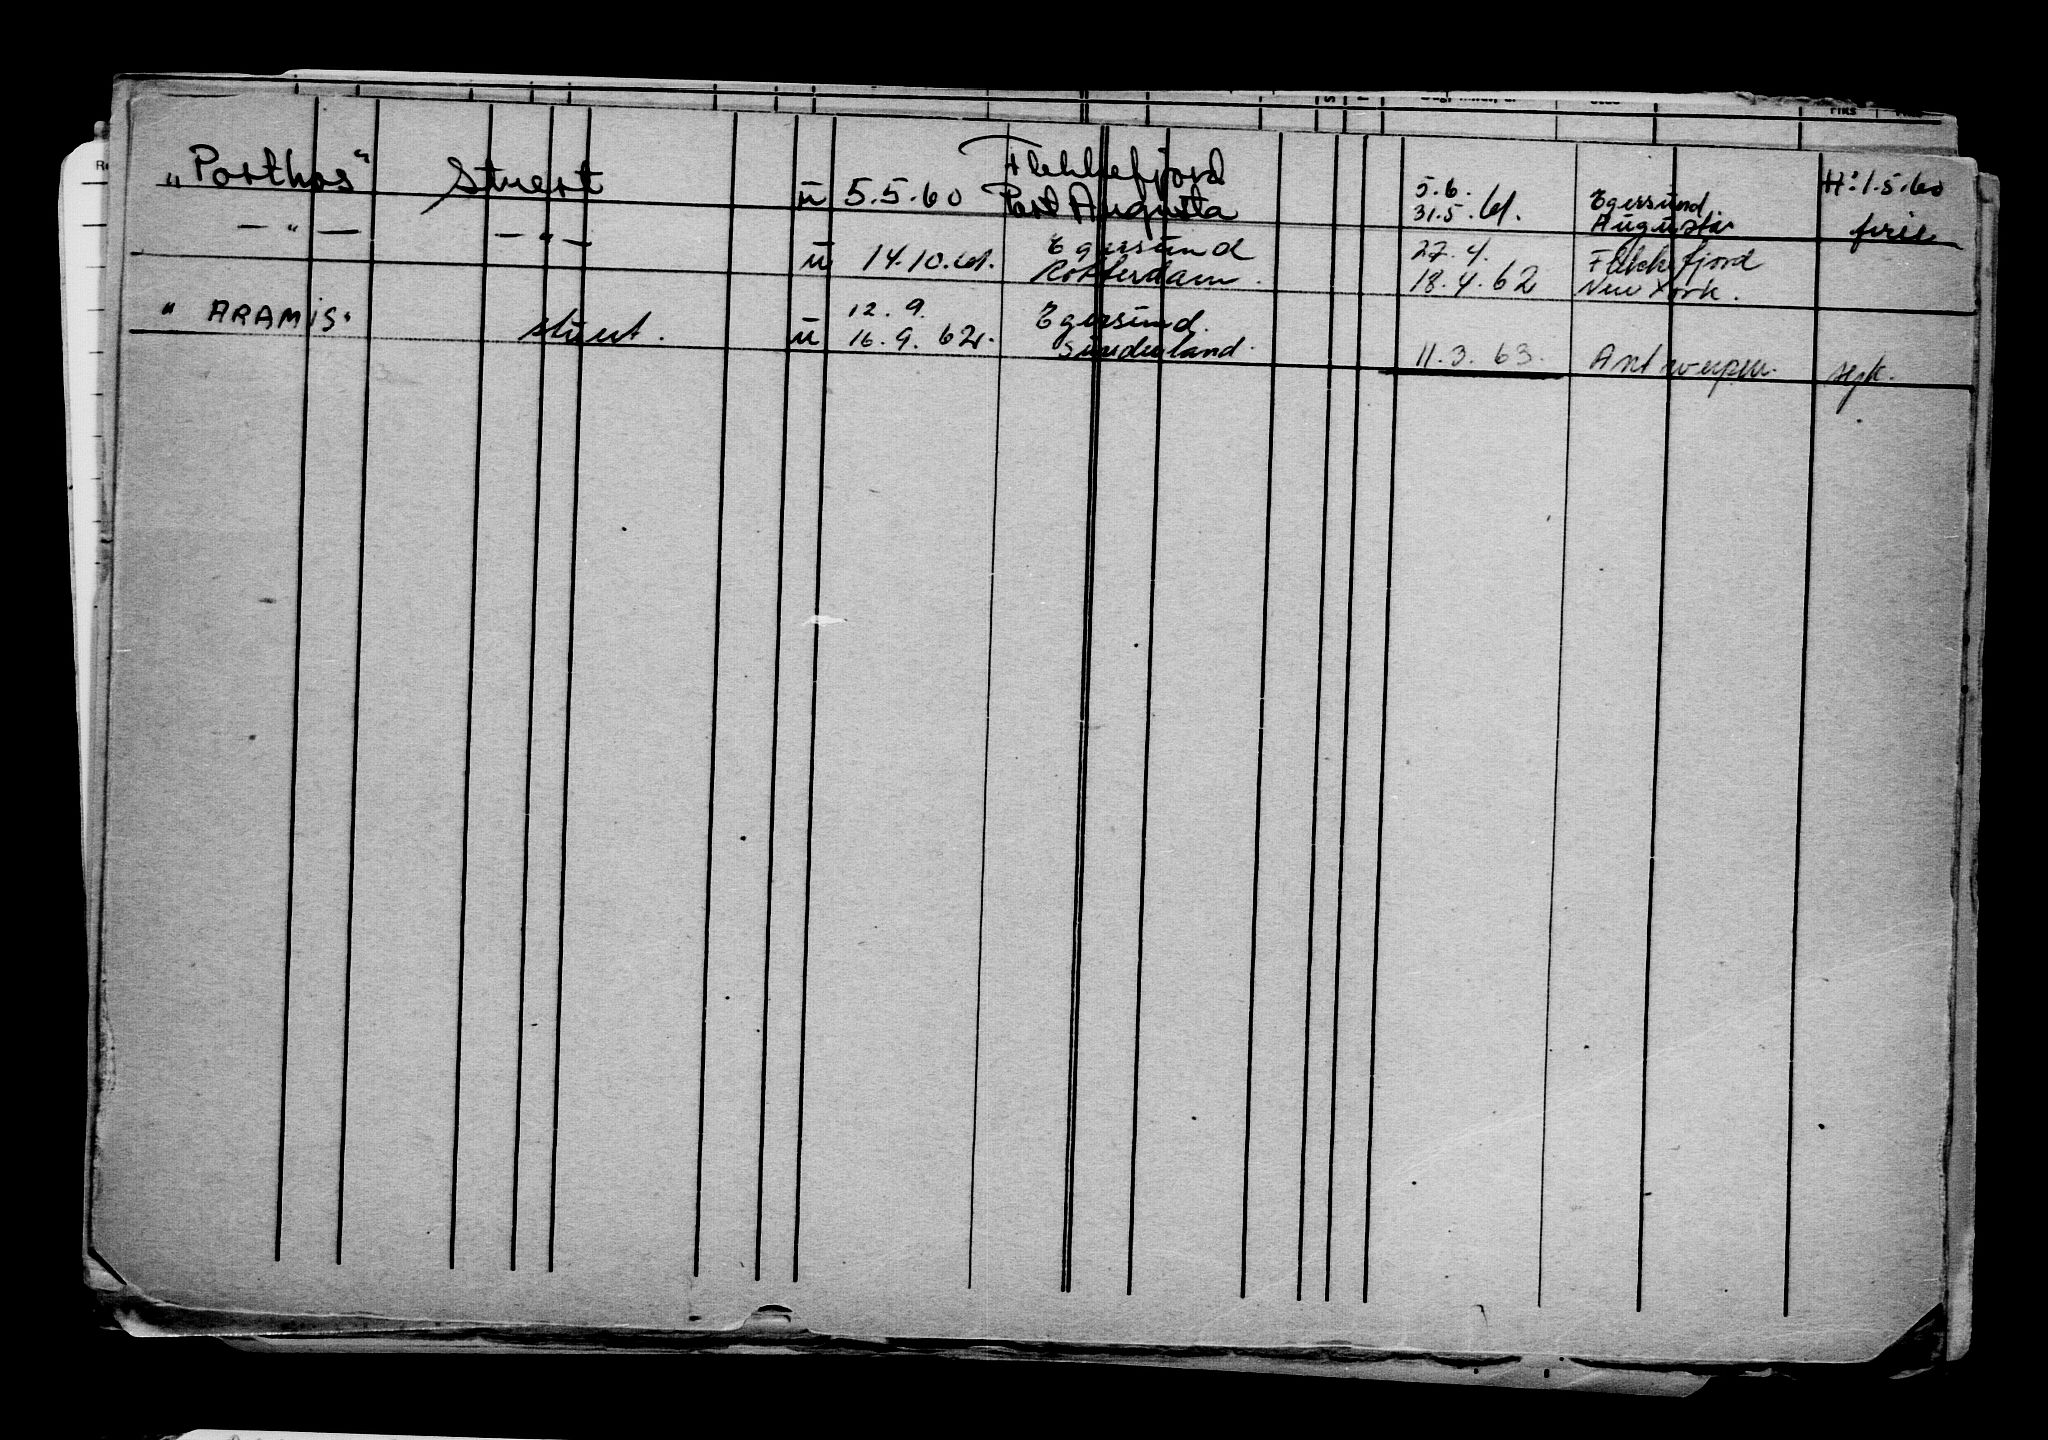 Flekkefjord
„Porthos" Stuert ū 5.5.60 Port Augusta 5.6. 31.5.61. Egersund Augusta H: 1.5.60
— " — — " — ferie
ū 14.10.61. Egersund Rotterdam. 27.4. 18.4.62 Flekkefjord New York.
" ARAMIS" stuert. ū 12.9. 16.9.62. Egersund. Sunderland. 11.3.63. Antwerpen. syk.